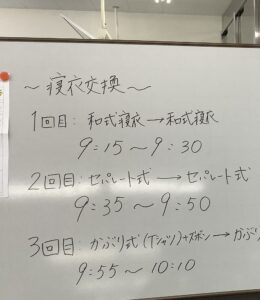 ～寝衣交換～
1回目：和式寝衣→和式寝衣
9：15～9：30
2回目：セパレート式→セパレート式
9：35～9：50
3回目：かぶり式(Tシャツ)+ズボン→かぶり
9：55～10：10